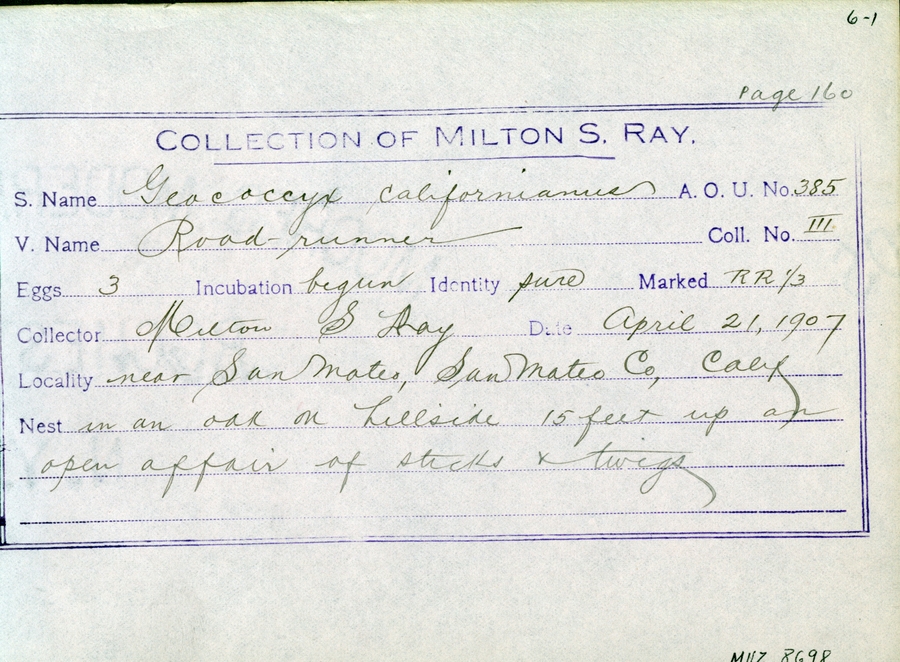 6-1
Page 160
COLLECTION OF MILTON S. RAY.
S. Name Geococcyx californianus A. O. U. No. 385
V. Name Road-runner Coll. No. III
Eggs 3 Incubation begun Identity sure Marked RR 1/3
Collector Milton S Ray Date April 21, 1907
Locality near San Mateo, San Mateo Co, Calif
Nest in an oak on hillside 15 feet up an
open affair of sticks & twigs
MVZ 8698